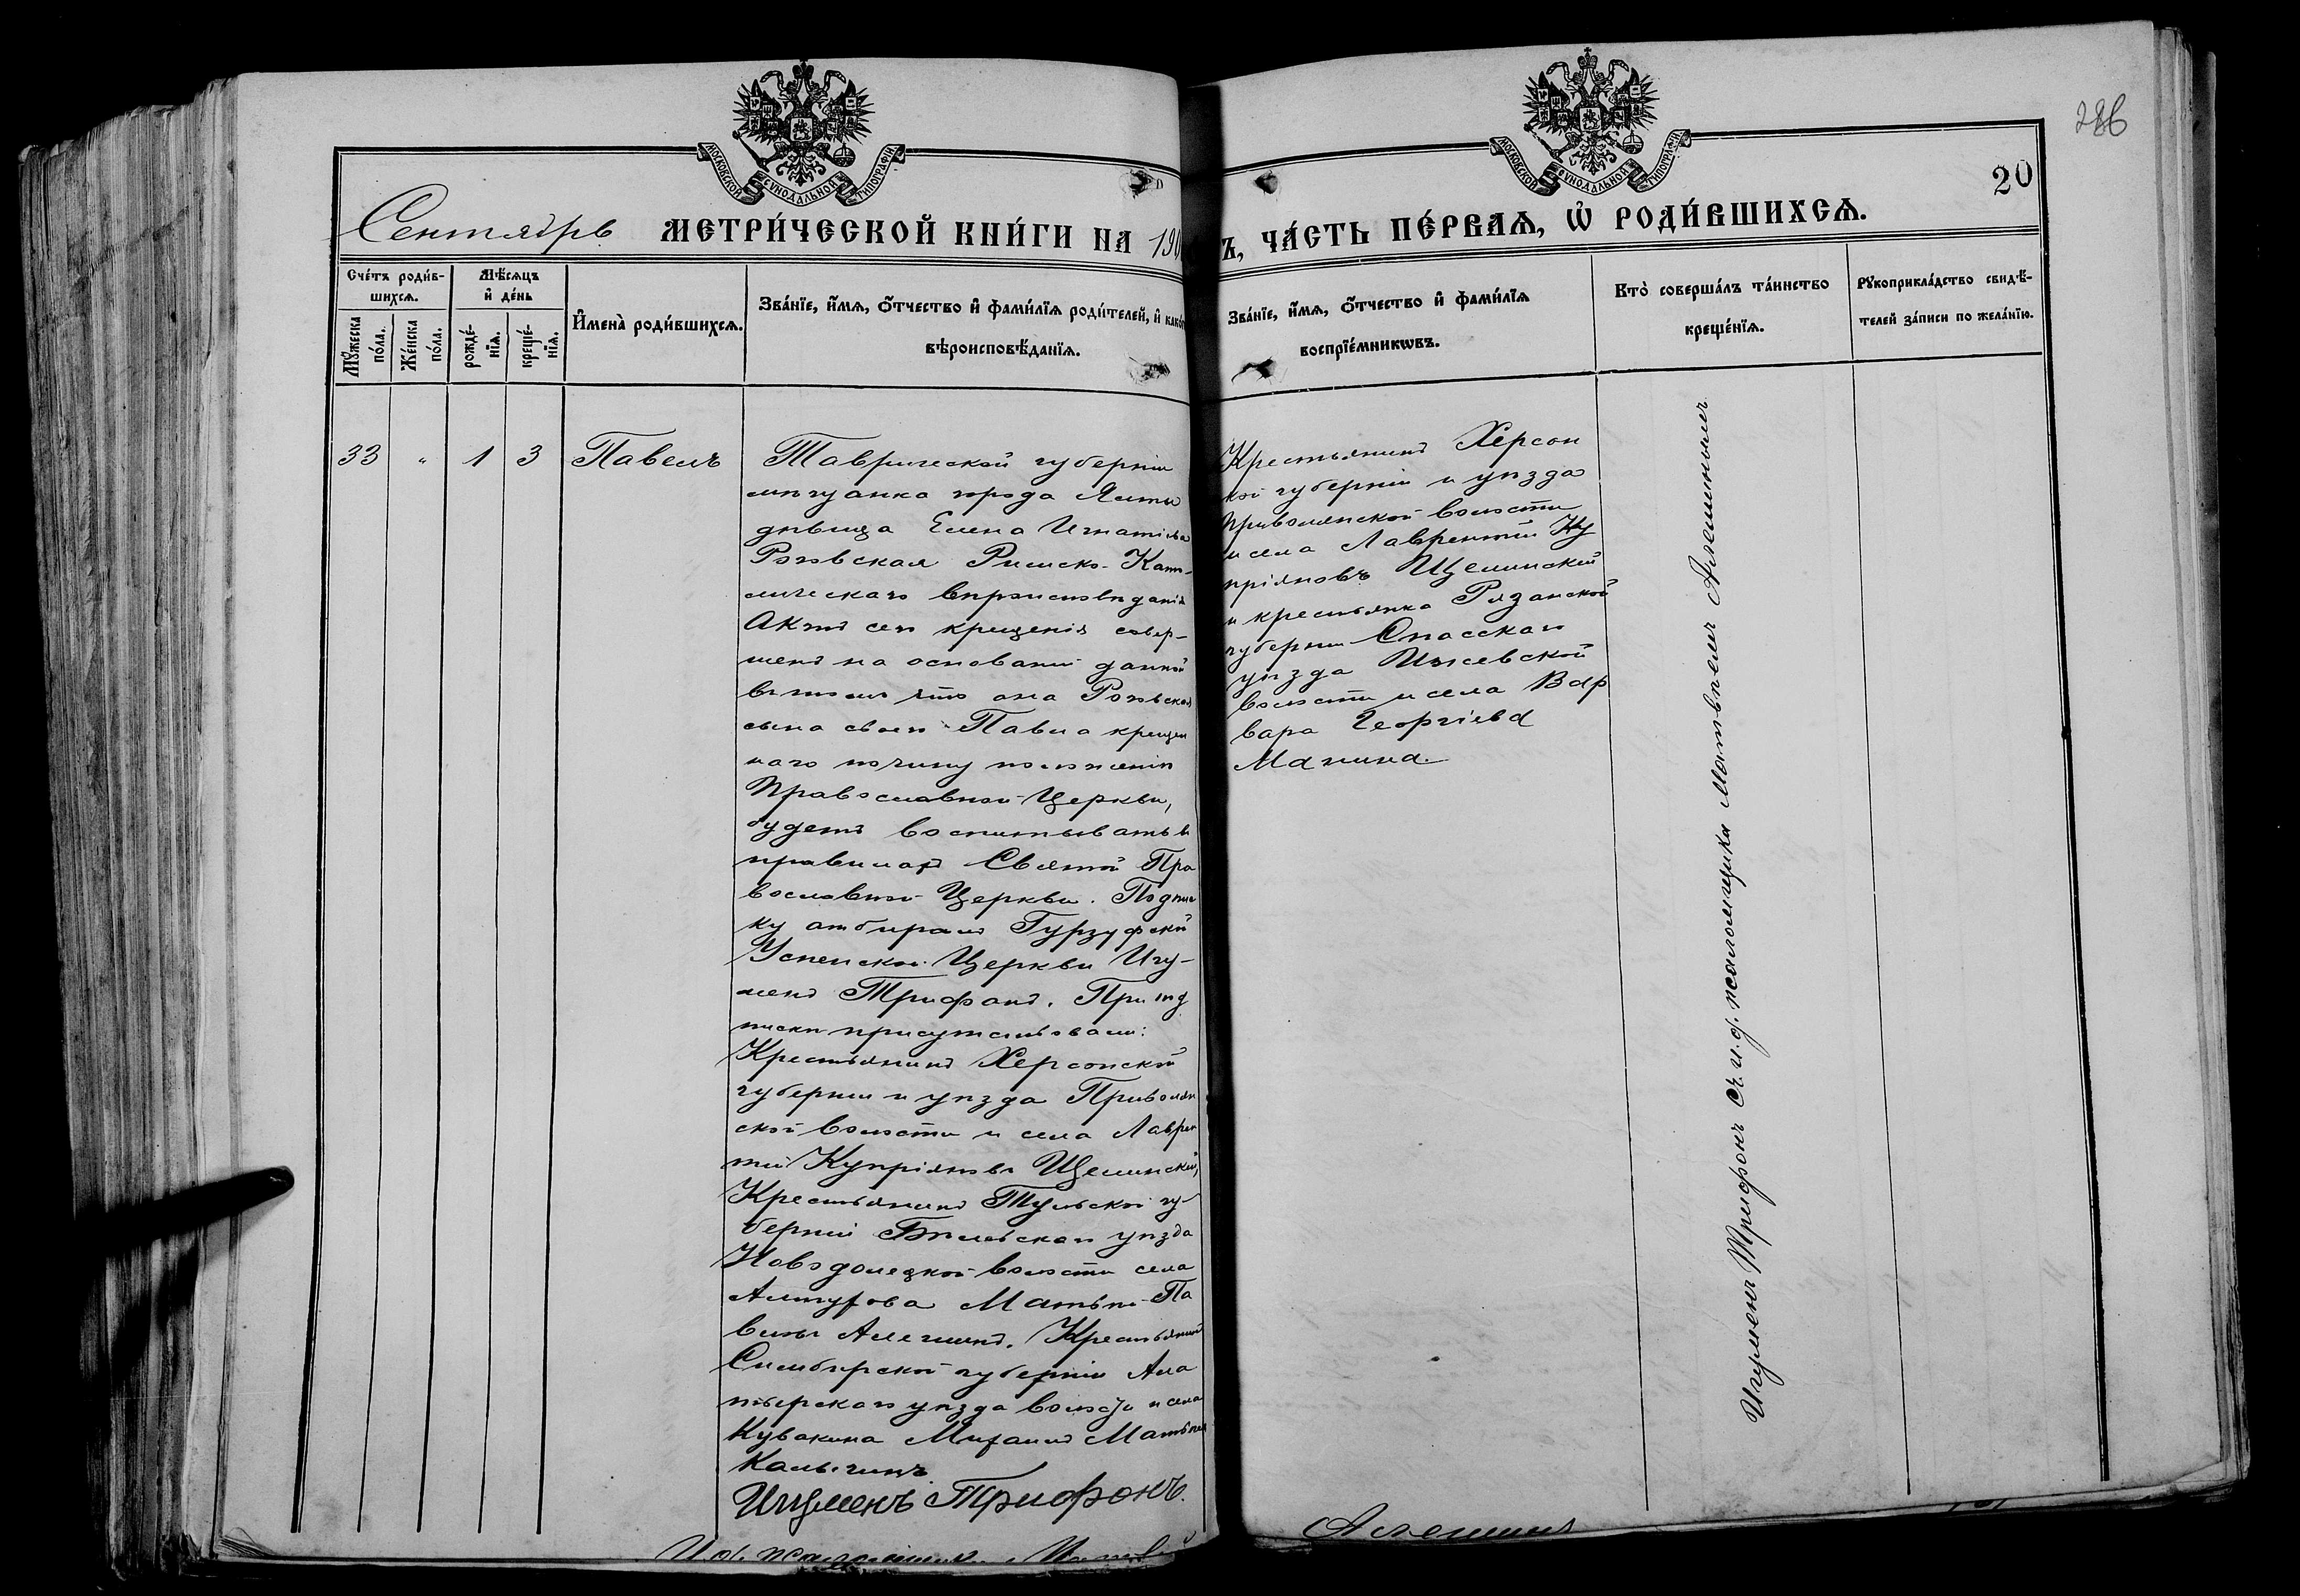 286
20
МОСКОВСКОЙ СѴНОДАЛЬНОЙ ТИПОГРАФІИ
МОСКОВСКОЙ СѴНОДАЛЬНОЙ ТИПОГРАФІИ
Сентябрь МЕТРИ́ЧЕСКОЙ КНИ́ГИ НА 190
Ъ, ЧА́СТЬ ПЕ́РВАѦ, Ѡ҆ РОДИ́ВШИХСѦ.
Сче́тъ роди́в-
шихсѧ.
Мѣ́сѧцъ
и҆ де́нь
Мꙋ́жеска
по́ла.
Же́нска
по́ла.
рожде́-
нїѧ.
креще́-
нїѧ.
И҆мена̀ роди́вшихсѧ.
Зва́нїе, и҆́мѧ, ѻ҆́тчество и҆ фами́лїѧ роди́телей, и҆ како́
вѣроисповѣ́данїѧ.
Зва́нїе, и҆́мѧ, ѻ҆́тчество и҆ фами́лїѧ
воспрїе́мникѡвъ.
Кто̀ соверша́лъ та́инство
креще́нїѧ.
Рꙋкоприкла́дство свидѣ́-
телей за́писи по жела́нїю.
33 " 1 3 Павелъ
Таврической губерніи
мѣщанка города Ялты
дѣвица Елена Игнатіева
Роговская Римско-Като-
лическаго вѣроисповѣданія
Актъ сего крещенія совер-
шенъ на основаніи данной
въ томъ что она Роговская
сына своего Павла крещен
наго по чину положенію
Православной Церкви,
будетъ воспитывать въ
правилахъ Святой Пра
вославной Церкви. Подпис
ку отбиралъ Гурзуфской
Успенской Церкви Игу-
менъ Трифонъ. При под
писки присутствовали:
Крестьянинъ Херсонской
губерніи и уѣзда Привольян
ской волости и села Лаврен
тій Купріяновъ Щелинскій,
Крестьянинъ Тульской гу-
берніи Бѣлевскаго уѣзда
Новодолецкой волости села
Матвѣй Па
вловъ Алешинъ. Крестьянинъ
Симбирской губерніи Ала
тырскаго уѣзда волости и села
Кувакина Михаилъ Матвѣев
Калыгинъ.
Игуменъ Трифонъ.
И. д. псаломщика Матвѣй
Крестьянинъ Херсон
кой губерніи и уѣзда
Привольянской волости
и села Лаврентій Ку
пріяновъ Щелинскій
и крестьянка Рязанской
губерніи Спасскаго
уѣзда Ижевской
волости и села Вар
вара Георгіева
Манина.
Игуменъ Трифонъ съ и. д. псаломщика Матвѣемъ Алешинымъ.
Алешинъ